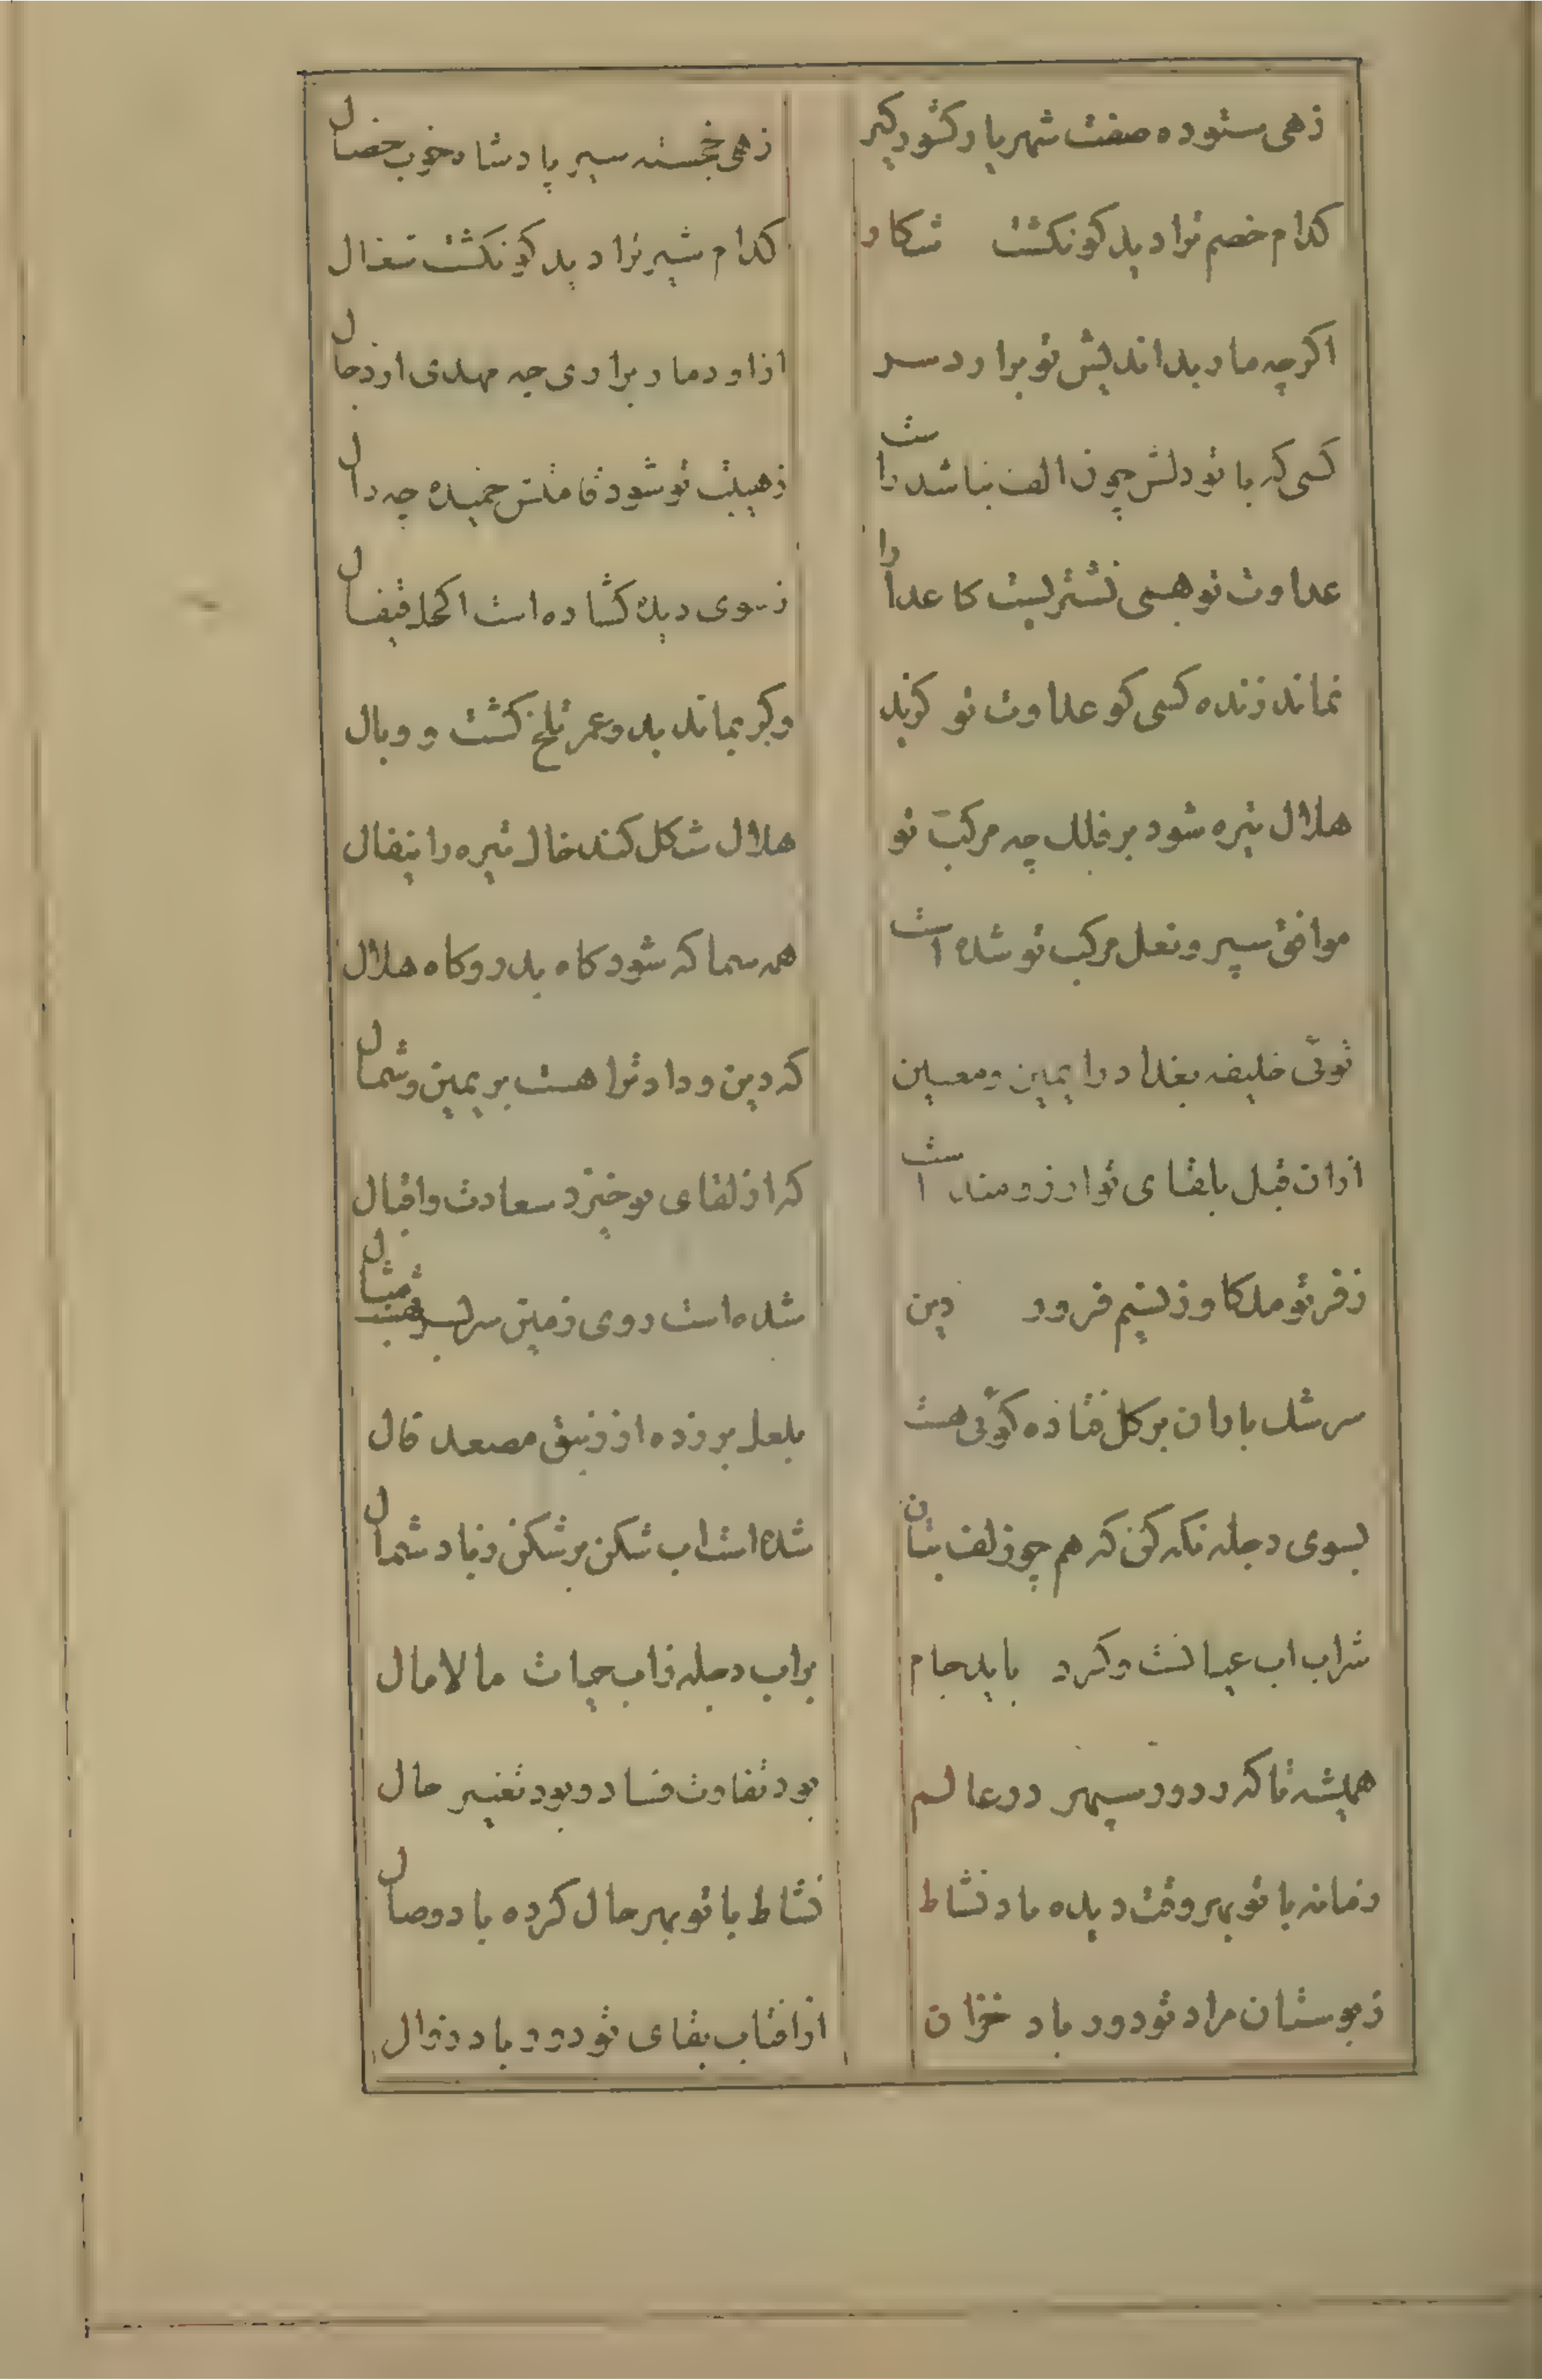 زهی ستوده صفت شهریار کشور کیر
زهی خجسته سیر پادشاه خوب خصال
کدام خصم ترا دید کو نکشت شکار
کدام شیر ترا دید کو نکشت شغال
اکر چه مار بداندیش تو برارد سر
ازاو دمار براری چه مهدی از دجال
کسی که با تو دلش چون الف نباشد راست
ز هیبت تو شود قامتش خمیده چه دال
عداوت تو همی نشتریست کاعدا را
ز سوی دیده کشاده است اکحل قیفال
نماند زنده کسی کو عداوت تو کزید
وکر بماند بدو عمر تلخ کشت و وبال
هلال تیره شود بر فلک چه مرکب تو
هلال شکل کند خال تیره را بنفال
موافق سپر و نعل مرکب تو شده است
همه سما که شود کاه بدر و کاه هلال
توئی خلیفه بغداد را یمین و معین
که دین و داد ترا هست بر یمین و شمال
ازان قبل بلقای تو ارزومند است
که از لقای تو خیزد سعادت و اقبال
ز فر تو ملکا وز نسیم فرور دین
شده است روی زمین سربسر بهشت مثال
سرشک باران بر کل فتاده کوئی هست
بلعل بر زده از زنبق مصعد قال
بسوی دجله نکه کن که هم چو زلف بتان
شده است اب شکن بر شکن زباد شمال
شراب اب عیانست و کرد باید جام
براب دجله زاب حیات مالامال
همیشه تا که ز دور سپهر در عالم
بود تفاوت فساد و بود تغییر حال
زمانه با تو بهر وقت دیده باد نشاط
نشاط با تو بهر حال کرده باد وصال
ز بوستان مراد تو دور باد خزان
از افتاب بقای تو دور باد زوال